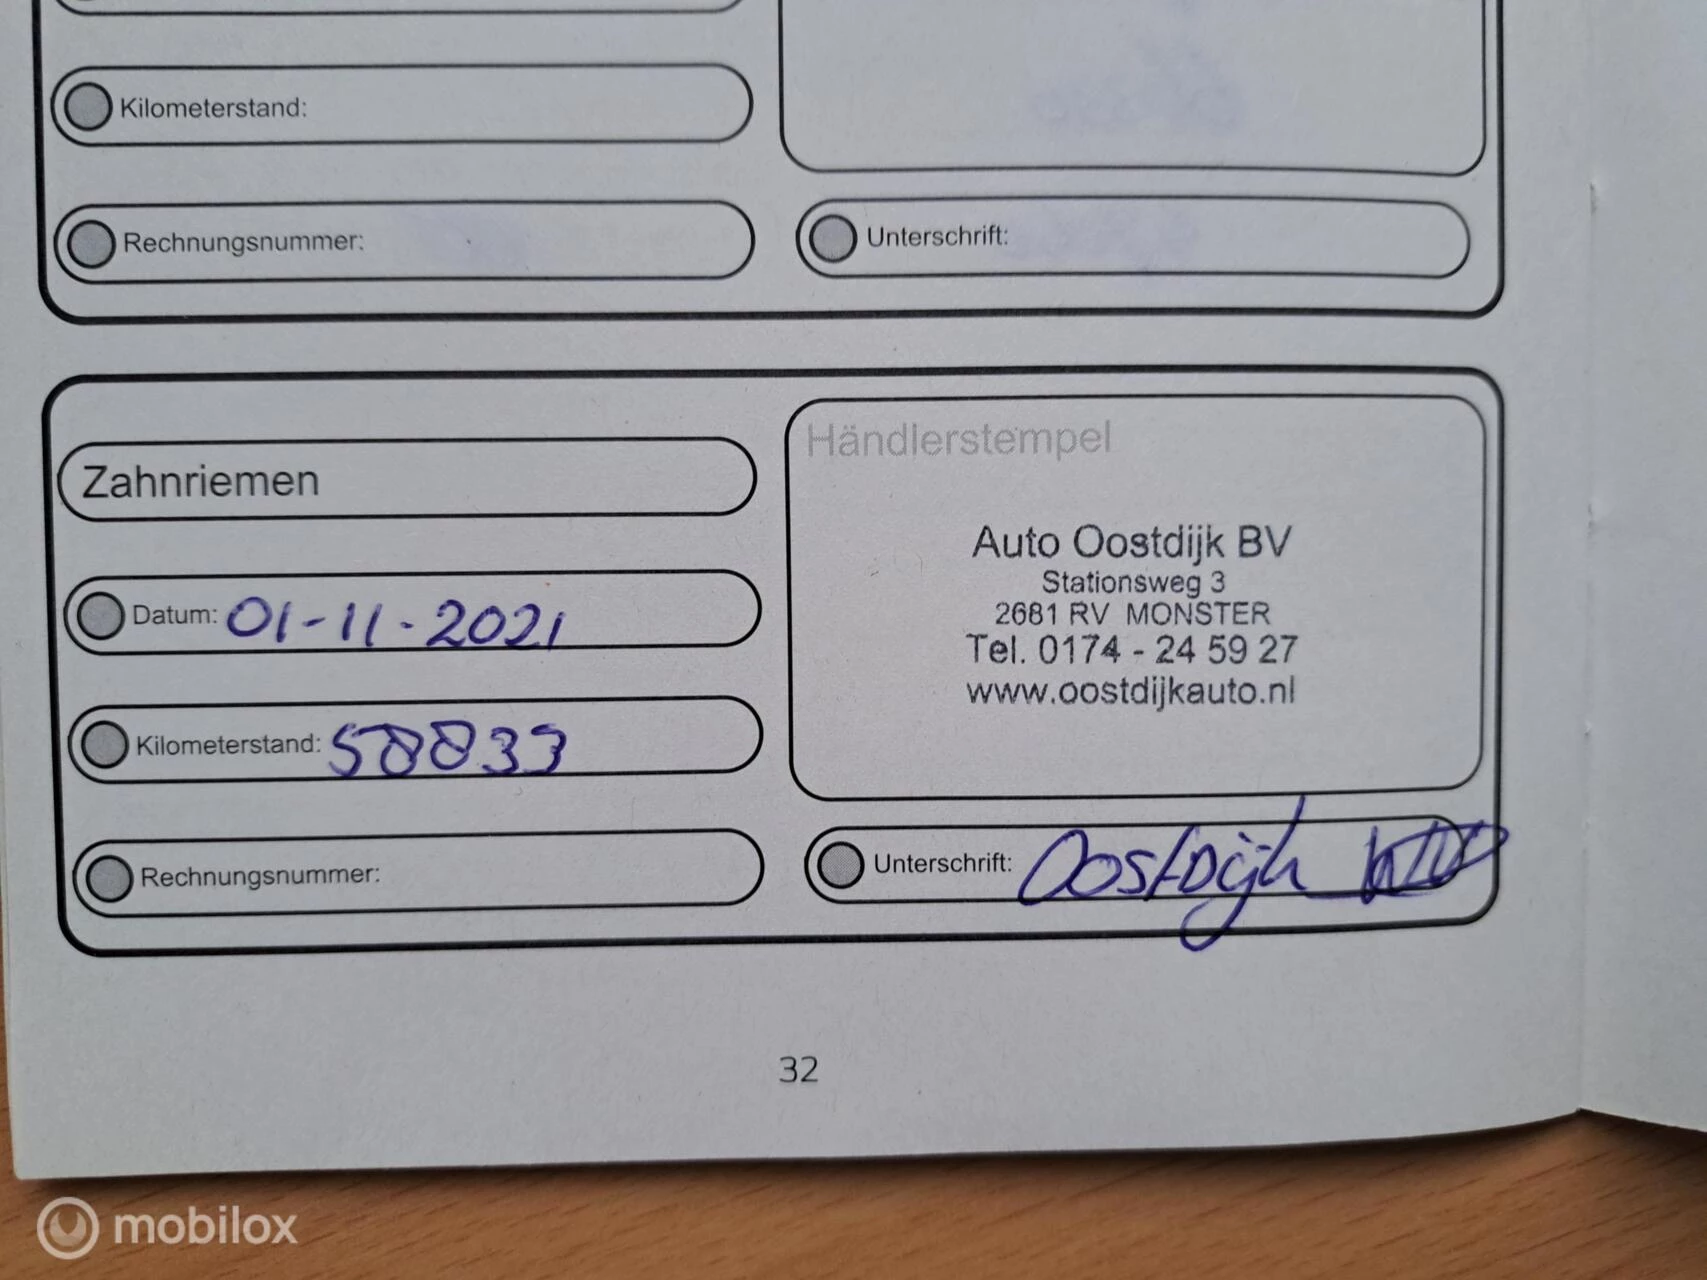 Kilometerstand:
Rechnungsnummer:
Unterschrift:
Zahnriemen
Datum: 01-11-2021
Kilometerstand: 58833
Rechnungsnummer:
Händlerstempel
Auto Oostdijk BV
Stationsweg 3
2681 RV MONSTER
Tel. 0174 - 24 59 27
www.oostdijkauto.nl
Unterschrift: Oostdijk
32
mobilox